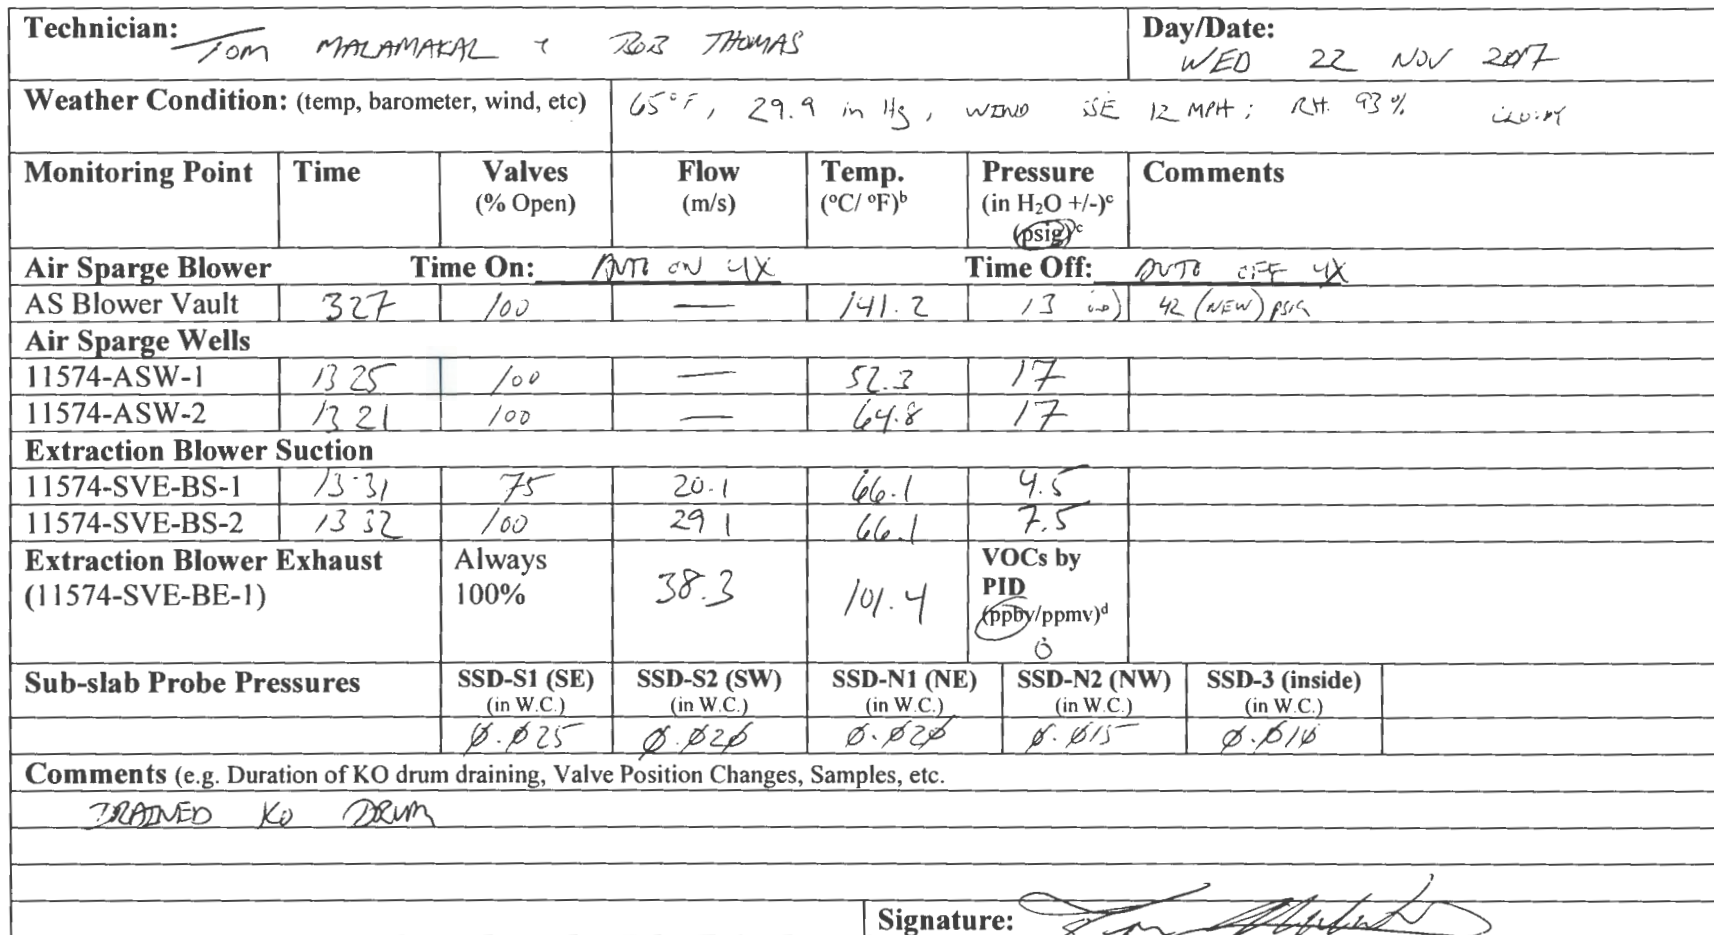 Technician: TOM MALAMAKAL + BOB THOMAS Day/Date: WED 22 NOV 2017
Weather Condition: (temp, barometer, wind, etc) 65°F, 29.9 in Hg, WIND SE 12 MPH; RH. 93%
Monitoring Point Time Valves (% Open) Flow (m/s) Temp. (°C/ °F)ᵇ Pressure (in H₂O +/-)ᶜ (psig)ᶜ Comments
Air Sparge Blower Time On: AUTO ON 4X Time Off: AUTO OFF 4X
AS Blower Vault 327 100 — 141.2 13 42 (NEW) psig
Air Sparge Wells
11574-ASW-1 1325 100 — 52.3 17
11574-ASW-2 1321 100 — 64.8 17
Extraction Blower Suction
11574-SVE-BS-1 13:31 75 20.1 66.1 4.5
11574-SVE-BS-2 1332 100 29 1 66.1 7.5
Extraction Blower Exhaust (11574-SVE-BE-1) Always 100% 38.3 101.4 VOCs by PID (ppbv/ppmv)ᵈ 0
Sub-slab Probe Pressures SSD-S1 (SE) (in W.C.) SSD-S2 (SW) (in W.C.) SSD-N1 (NE) (in W.C.) SSD-N2 (NW) (in W.C.) SSD-3 (inside) (in W.C.)
0.025 0.020 0.020 0.015 0.010
Comments (e.g. Duration of KO drum draining, Valve Position Changes, Samples, etc.
DRAINED KO DRUM
Signature: